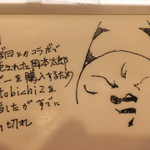 とのコラボで
された岡本太郎
ーを購入するため
tobichiを
したがすでに
切れ